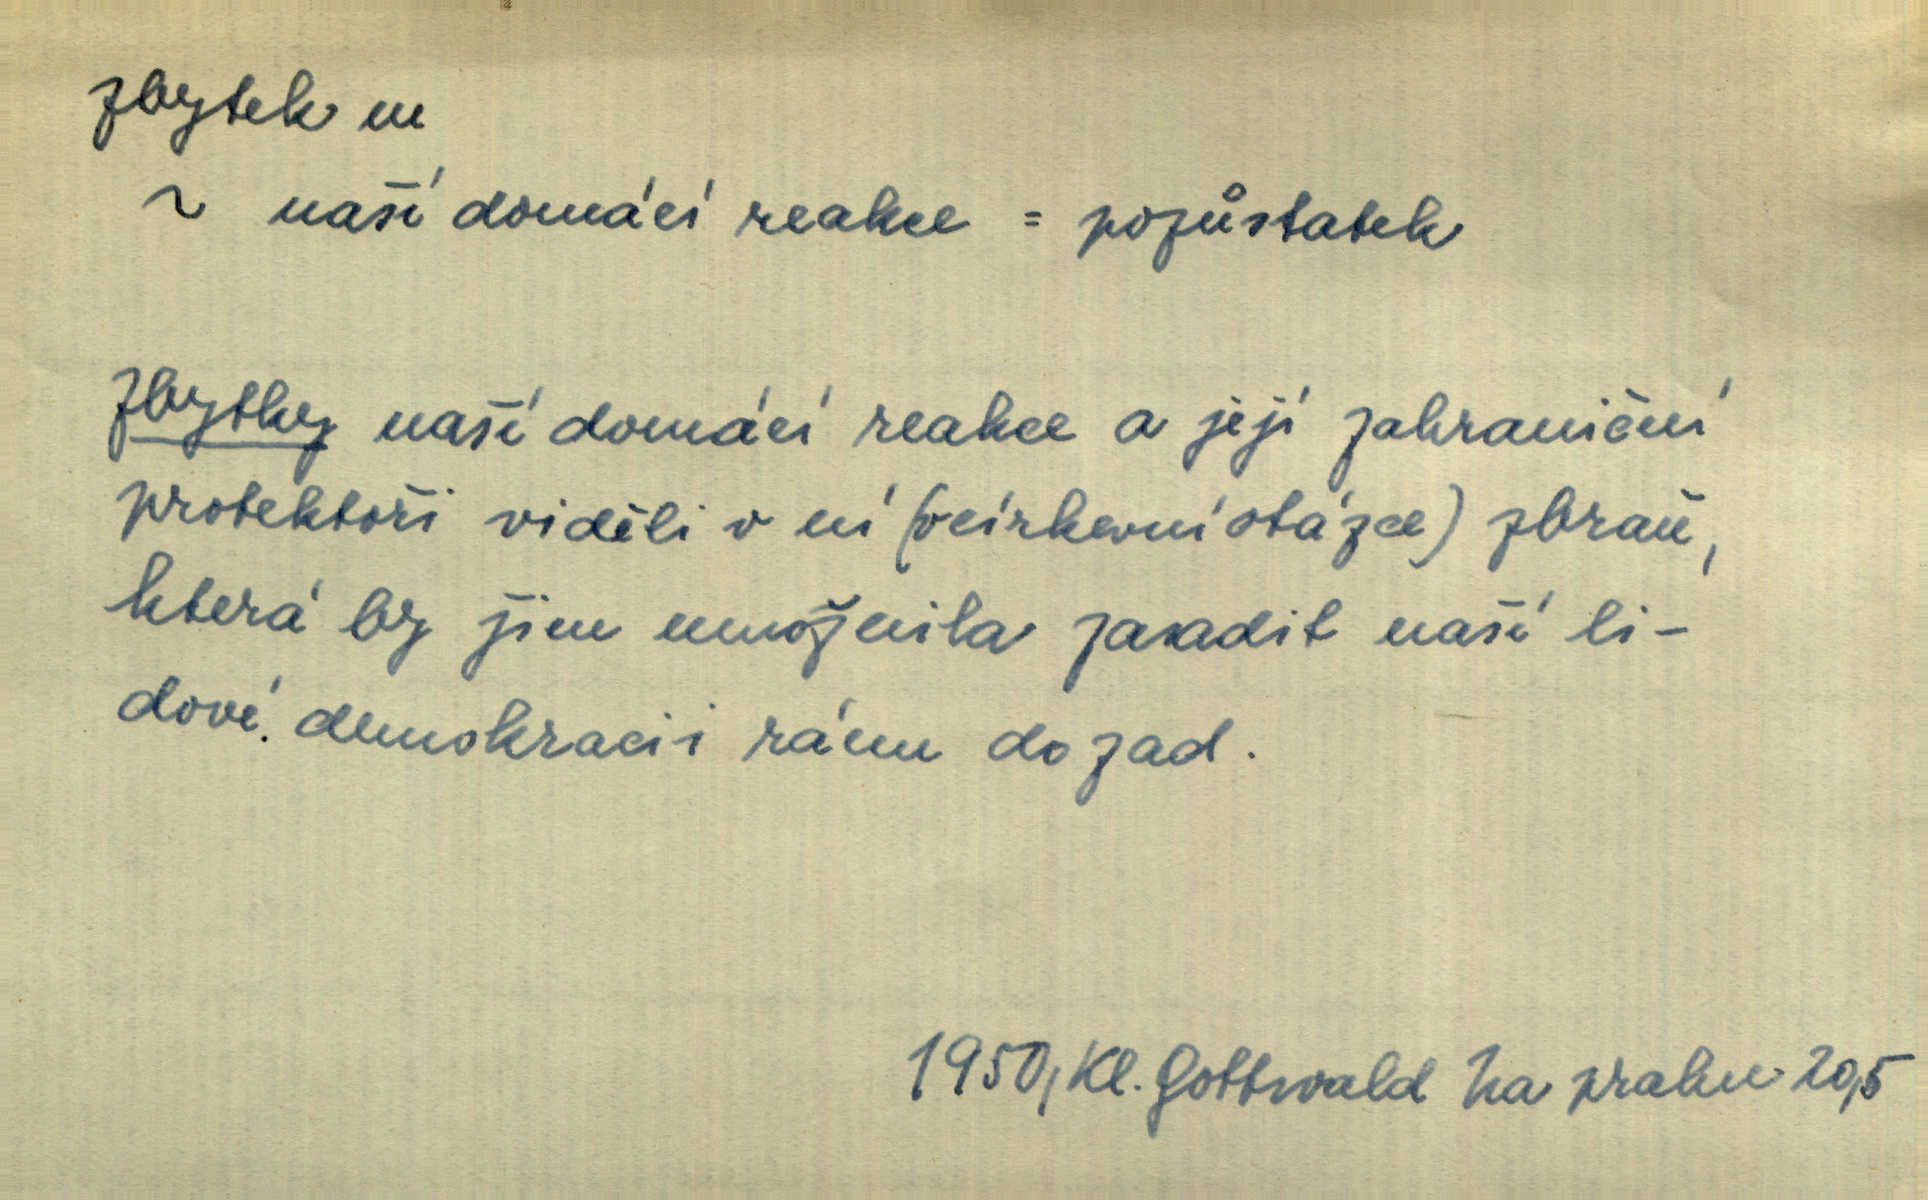 zbytek m
~ naší domácí reakce = pozůstatek
Zbytky naší domácí reakce a její zahraniční
protektoři viděli v ní (v církevní otázce) zbraň,
která by jim umožnila zasadit naší li-
dové demokracii ránu do zad.
1950, Kl. Gottwald Na prahu 20,5